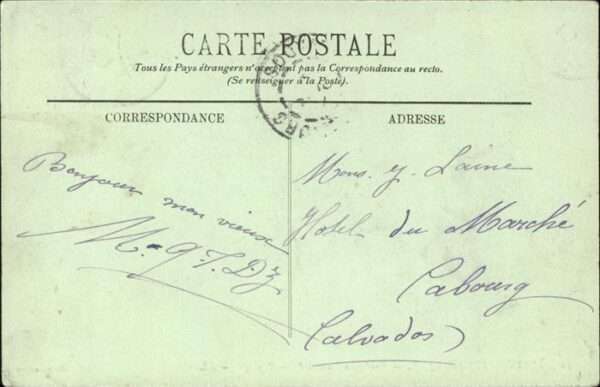 CARTE POSTALE
Tous les Pays étrangers n'acceptent pas la Correspondance au recto.
(Se renseigner à la Poste).
CORRESPONDANCE
ADRESSE
Bonjour mon vieux
Mons. y. Laine
Hotel du Marché
Cabourg
Calvados